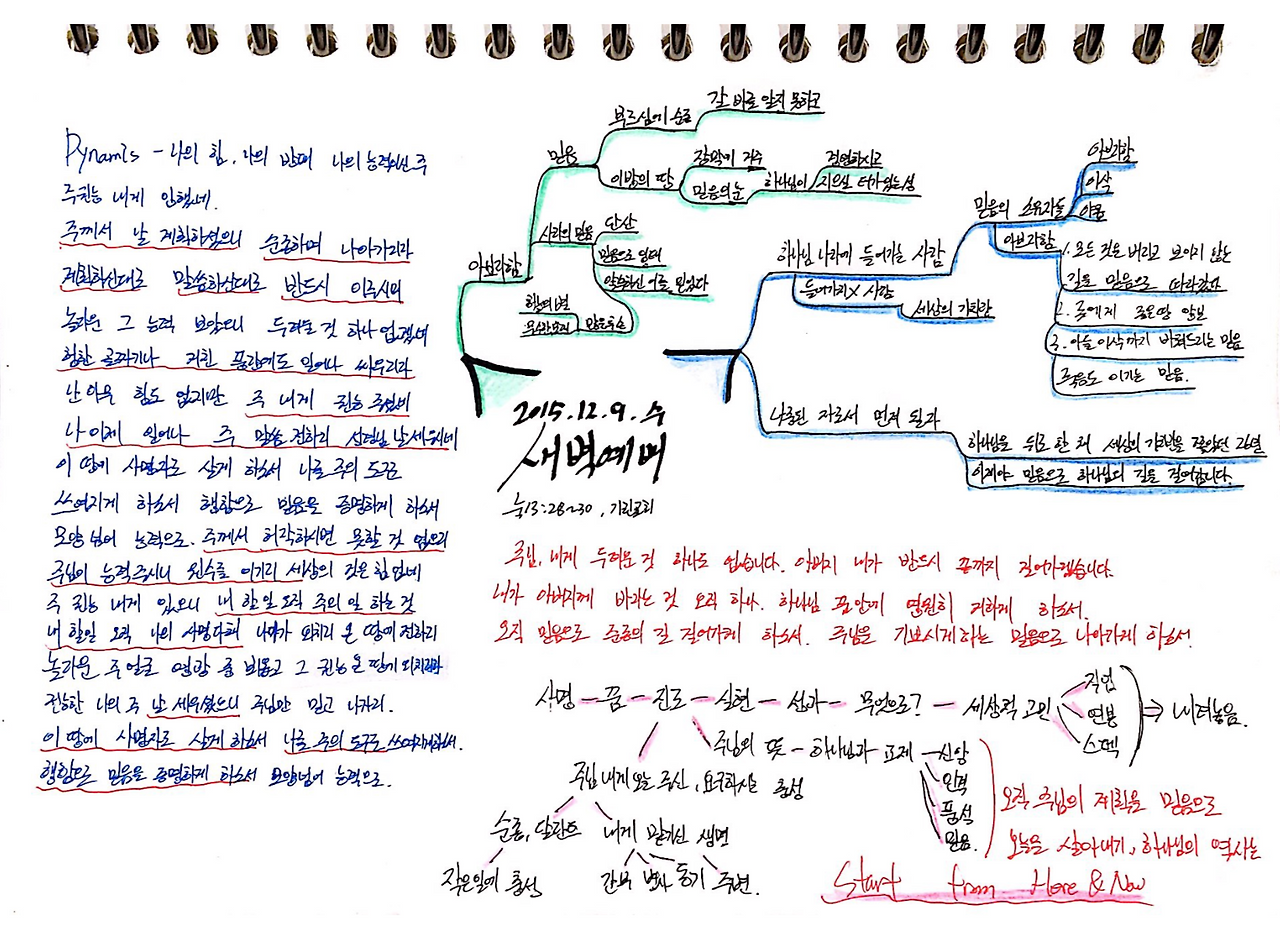 Dynamis - 나의 힘, 나의 방패 나의 능력이신 주
주 권능 내게 임했네.
주께서 날 계획하셨으니 순종하며 나아가리라
계획하신대로 말씀하신대로 반드시 이루시며
놀라운 그 능력 보았으니 두려울 것 하나 없겠네
험한 골짜기나 거친 풍랑에도 일어나 싸우리라
난 아무 힘도 없지만 주 내게 권능 주셨네
나 이제 일어나 주 말씀 전하리 선현님 날 세우네
이 땅에 사명자로 살게 하소서 나를 주의 도구로
쓰여지게 하소서 행함으로 믿음을 증명하게 하소서
모양 넘어 능력으로. 주께서 허락하시면 못할 것 없으리
주님이 능력주시니 원수를 이기리 세상의 것은 힘 없네
주 권능 내게 있으니 내 할 일 오직 주의 일 하는 것
내 할일 오직 나의 사명다해 외치리 온 땅에 전하리
놀라운 주 얼굴 영광 중 뵈옵고 그 권능 온 땅에 외치리라
전능한 나의 주 날 세우셨으니 주님만 믿고 나가리.
이 땅에 사명자로 살게 하소서 나를 주의 도구로 쓰여지게하소서.
행함으로 믿음을 증명하게 하소서 모양넘어 능력으로.
아브라함
믿음
부르심에 순종
갈 바를 알지 못하고
이방의 땅
장막에 거주
믿음의 눈
하나님이
경영하시고
지으실 터가 있는 성
사라의 믿음
단산
믿음으로 잉태
말씀하신 이를 믿었다
하늘에 별
많은 후손
2015.12.9. 수
새벽예배
눅13:28~30,
하나님 나라에 들어가는 사람
믿음의 소유자들
아브라함
이삭
야곱
아브라함
1. 모든 것을 버리고 보이지 않는
길을 믿음으로 따라갔다
2. 롯에게 좋은땅 양보
3. 아들 이삭까지 바쳐드리는 믿음
죽음도 이기는 믿음.
들어가지 X 사람
세상의 가치관
나중된 자로서 먼저 될 자
하나님을 뒤로 한 채 세상의 가치관을 쫓았던 라면
이제야 믿음으로 하나님의 길을 걸어합니다.
주님, 내게 두려운 것 하나도 없습니다. 아버지 내가 반드시 끝까지 걸어가겠습니다.
내가 아버지께 바라는 것 오직 하나. 하나님 품안에 영원히 거하게 하소서.
오직 믿음으로 순종의 길 걸어가게 하소서. 주님을 기쁘시게하는 믿음으로 나아가게 하소서.
사명 - 꿈 - 진로 - 실현 - 성과 - 무엇으로? - 세상적 고민
직업
연봉
스펙
⇒ 내려놓음.
주님의 뜻 - 하나님과 교제
신앙
인격
품성
믿음.
주님 내게 오늘 주신, 요구하심 충성
순종, 달란트
내게 맡기신 생명
작은일에 충성
간부 병사 동기 주변.
오직 주님의 계획을 믿음으로
오늘을 살아내기, 하나님의 역사는
Start from Here & Now